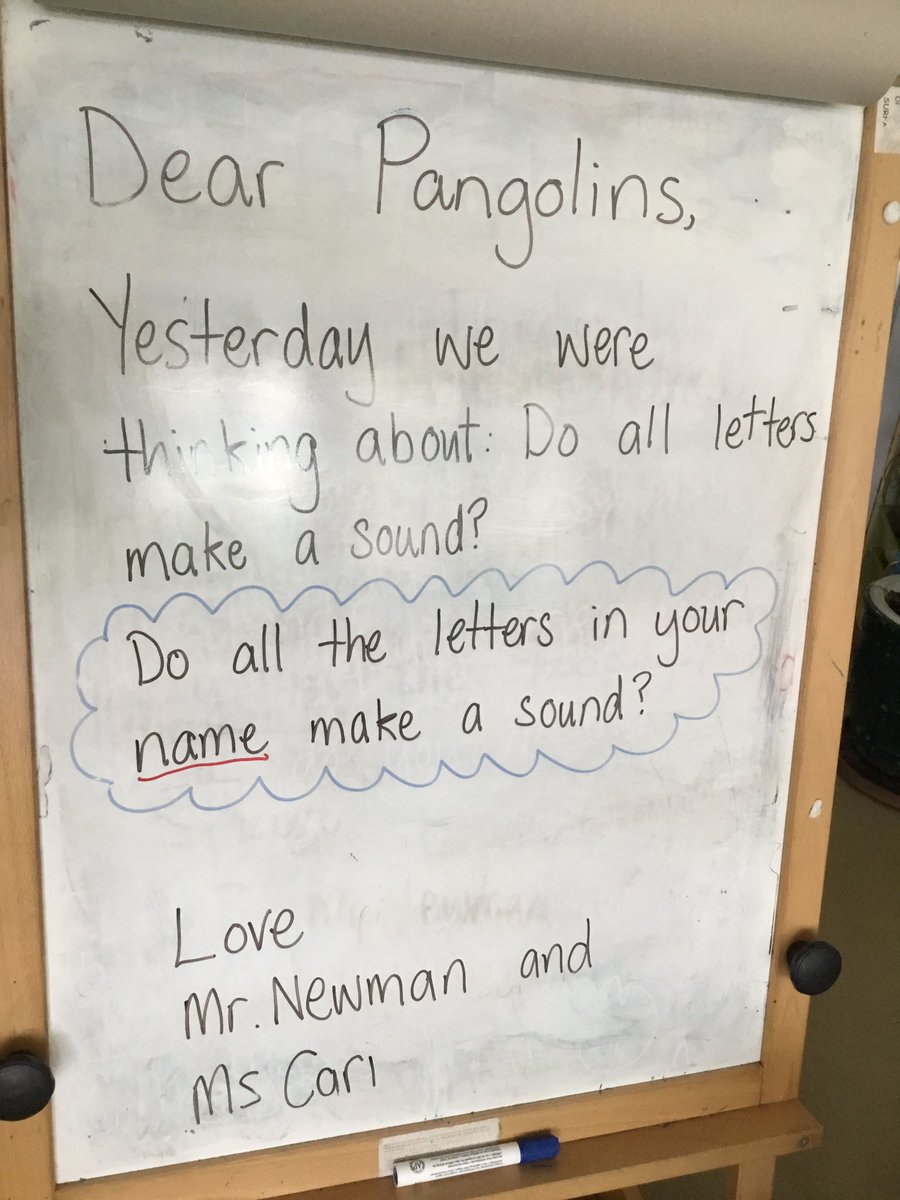 Dear Pangolins,
Yesterday we were
thinking about: Do all letters
make a sound?
Do all the letters in your
name make a sound?
Love
Mr. Newman and
Ms Cari